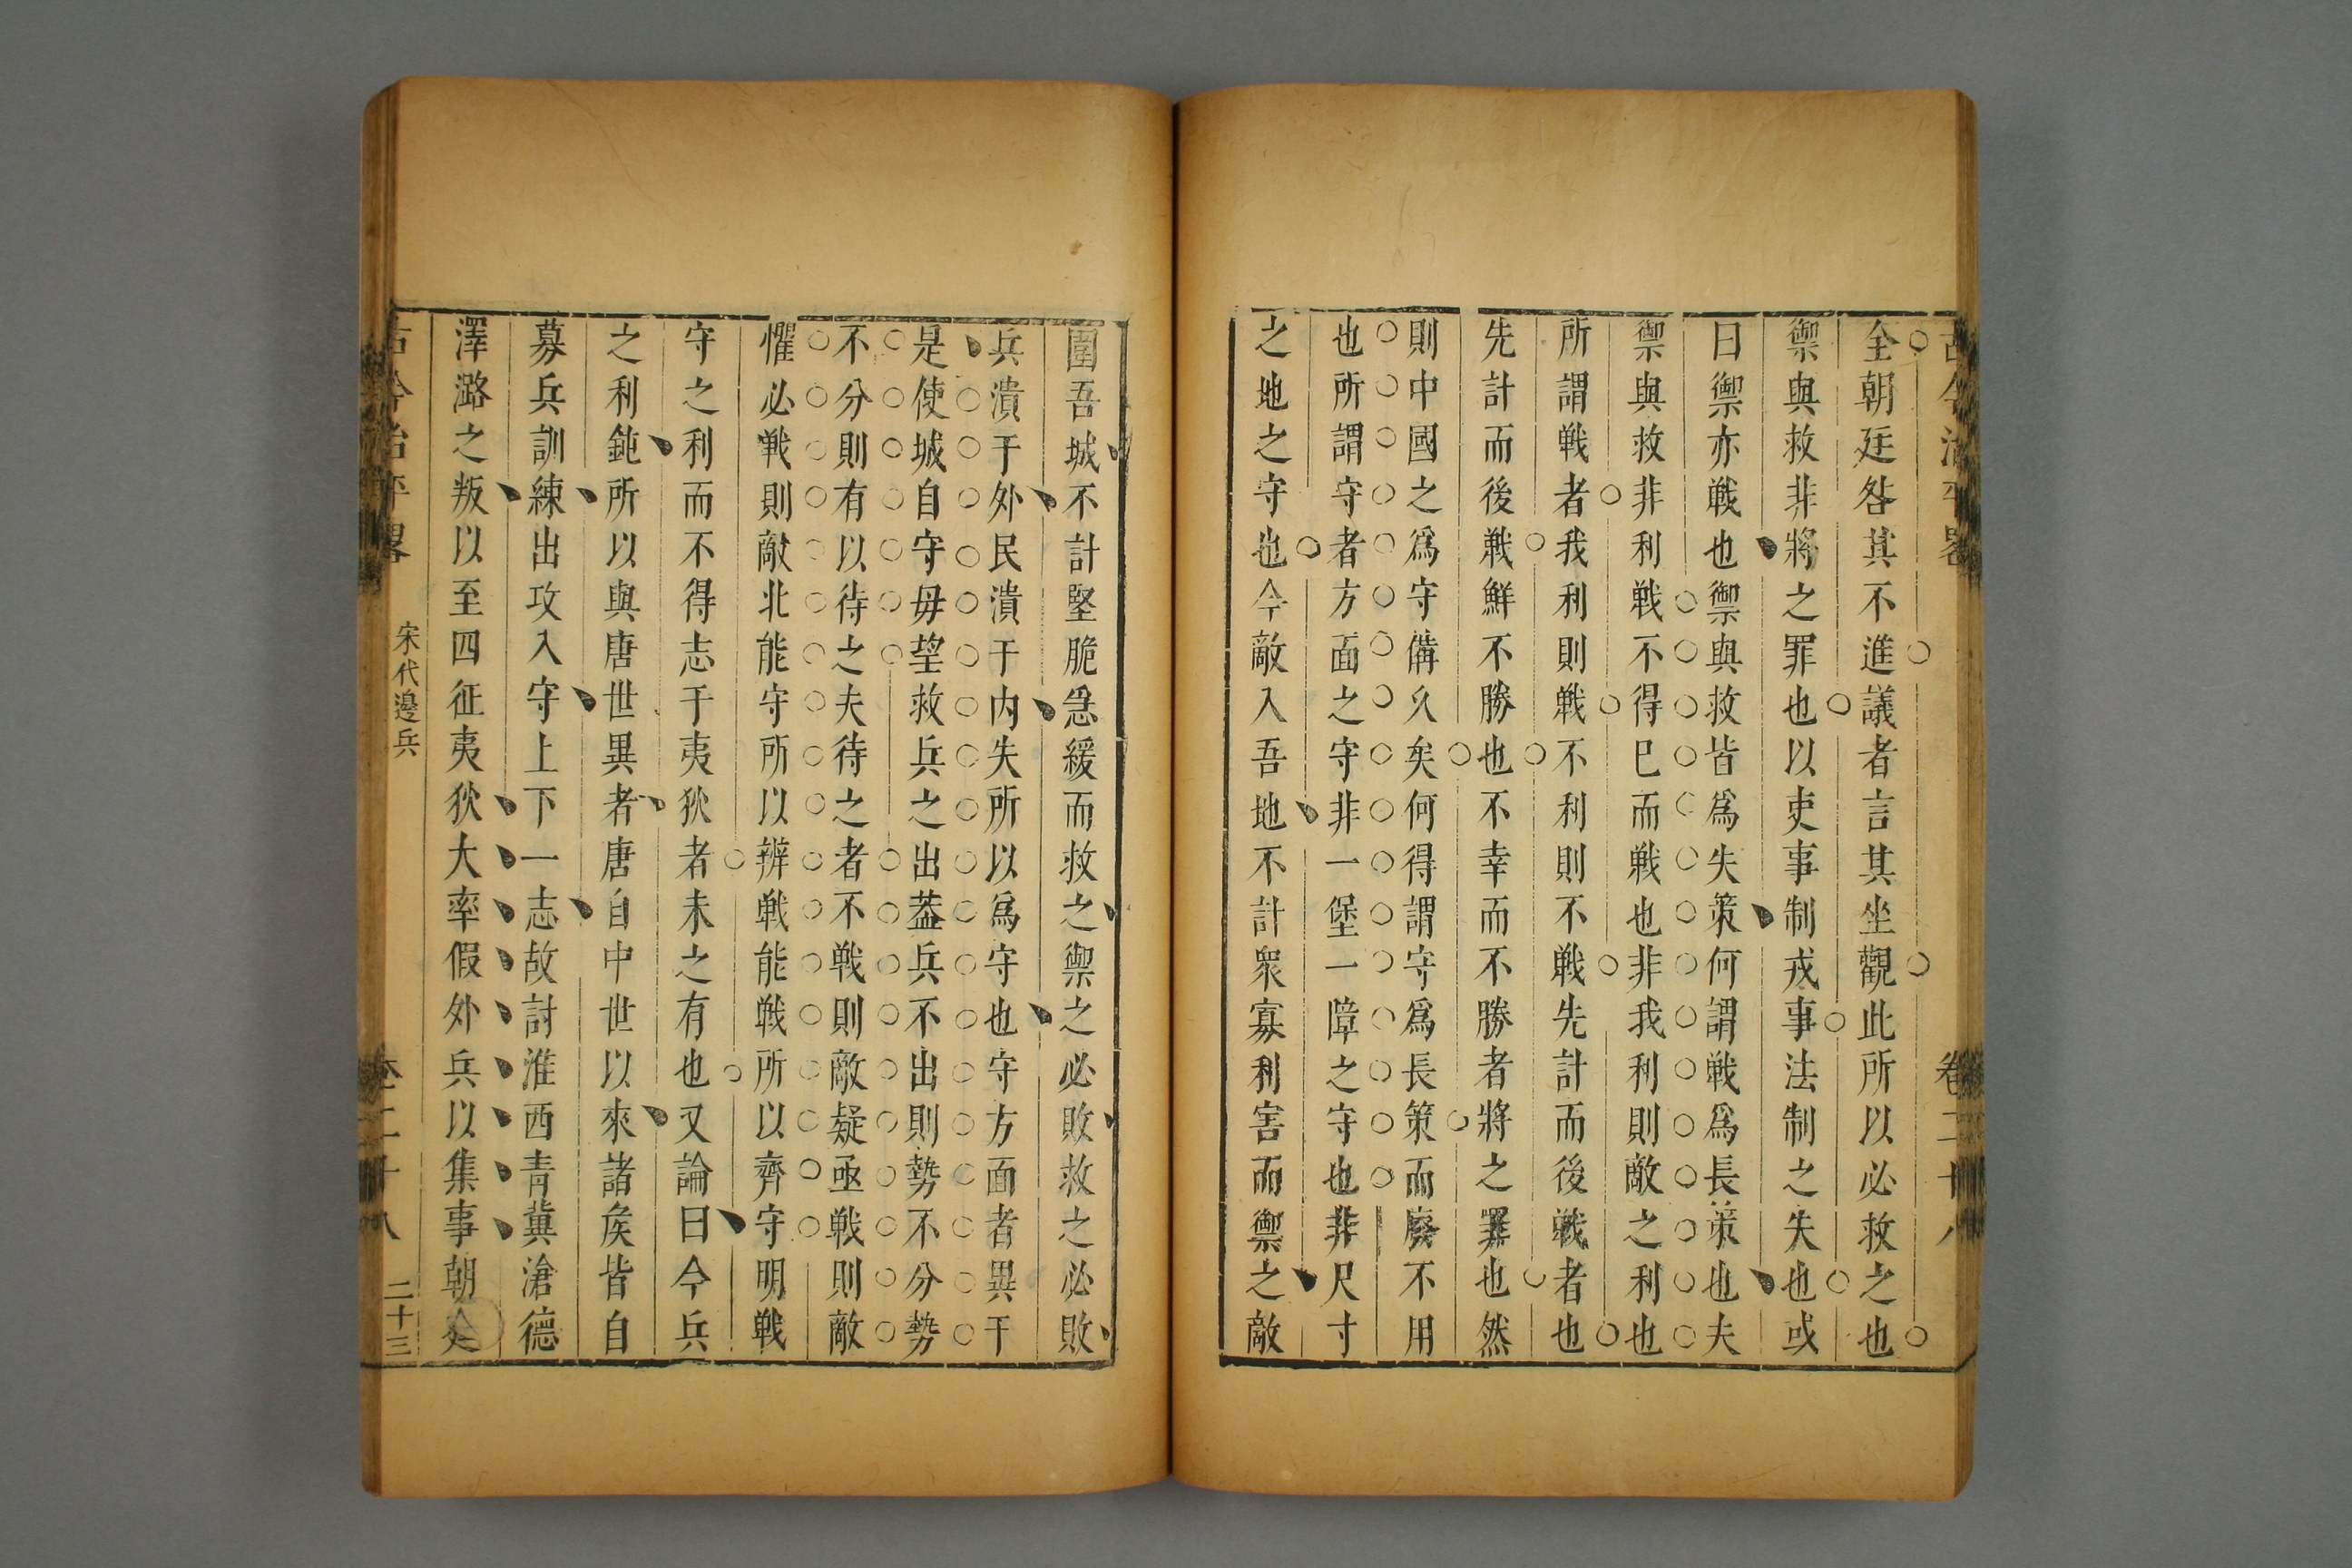 古今治平畧
卷二十八
全朝廷咎其不進議者言其坐觀此所以必救之也
禦與救非將之罪也以吏事制戎事法制之失也或
曰禦亦戰也禦與救皆爲失策何謂戰爲長策也夫
禦與救非利戰不得已而戰也非我利則敵之利也
所謂戰者我利則戰不利則不戰先計而後戰者也
先計而後戰鮮不勝也不幸而不勝者將之罪也然
則中國之爲守備久矣何得謂守爲長策而廢不用
也所謂守者方面之守非一堡一障之守也非尺寸
之地之守也今敵入吾地不計衆寡利害而禦之敵
圍吾城不計堅脆急緩而救之禦之必敗救之必敗
兵潰于外民潰于内失所以爲守也守方面者異于
是使城自守毋望救兵之出葢兵不出則勢不分勢
不分則有以待之夫待之者不戰則敵疑亟戰則敵
懼必戰則敵北能守所以辨戰能戰所以齊守明戰
守之利而不得志于夷狄者未之有也又論曰今兵
之利鈍所以與唐世異者唐自中世以來諸矦皆自
募兵訓練出攻入守上下一志故討淮西青冀滄德
澤潞之叛以至四征夷狄大率假外兵以集事朝
古今治平畧
宋代邊兵
卷二十八
二十三